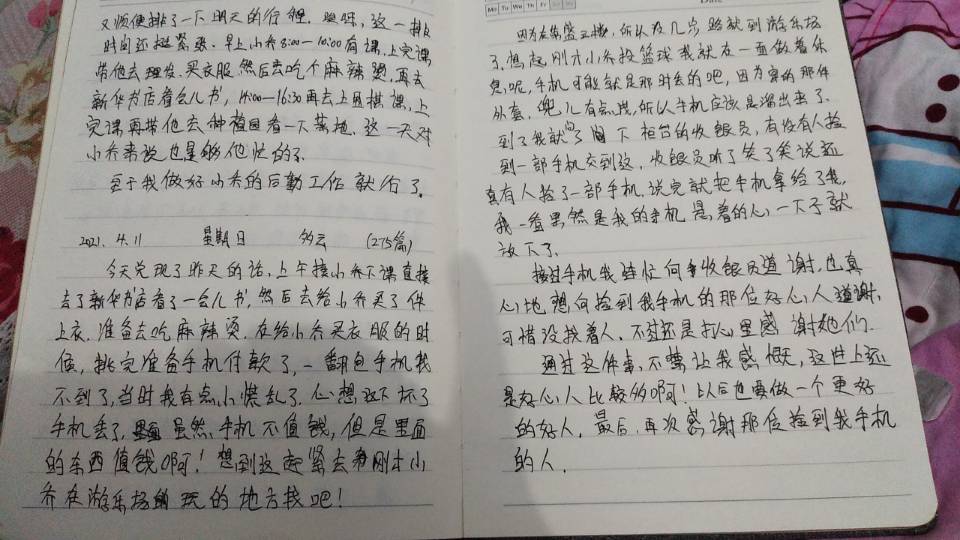 又顺便排了一下明天的行程. 嗯呀, 这一排
时间还挺紧张. 早上小乔8:00—10:00有课, 上完课
带他去理发. 买衣服. 然后去吃个麻辣烫. 再去
新华书店看会儿书, 14:00—16:30再去上围棋课, 上
完课再带他去种植园看一下菜地. 这一天对
小乔来说也是够他忙的了.
至于我做好小乔的后勤工作就行了.
2021. 4. 11 星期日 多云 (275篇)
今天兑现了昨天的话, 上午接小乔下课直接
去了新华书店看了一会儿书, 然后去给小乔买了件
上衣. 准备去吃麻辣烫. 在给小乔买衣服的时
候, 挑完准备手机付款了, 一翻包手机找
不到了, 当时我有点小慌乱了. 心想这下坏了
手机丢了, 虽然手机不值钱, 但是里面
的东西值钱啊! 想到这赶紧去刚才小
乔在游乐场玩的地方找吧!
Mo Tu We Th Fr Sa Su
Date
因为在负三楼, 所以没几步路就到游乐场
了. 想起刚才小乔投篮球我就在一面做着休
息呢, 手机可能就是那时丢的吧, 因为穿的那件
外套, 兜儿有点浅, 所以手机应该是溜出来了.
到了我就问了下柜台的收银员, 有没有人捡
到一部手机交到这, 收银员听了笑了笑说还
真有人捡了一部手机. 说完就把手机拿给了我,
我一看果然是我的手机 悬着的心一下子就
放下了.
接过手机我连忙向收银员道谢, 也真
心地想向捡到我手机的那位好心人道谢,
可惜没找着人. 不过还是打心里感谢她们.
通过这件事, 不禁让我感慨, 这世上还
是好心人比较多啊! 以后也要做一个更好
的好人, 最后, 再次感谢那位捡到我手机
的人.